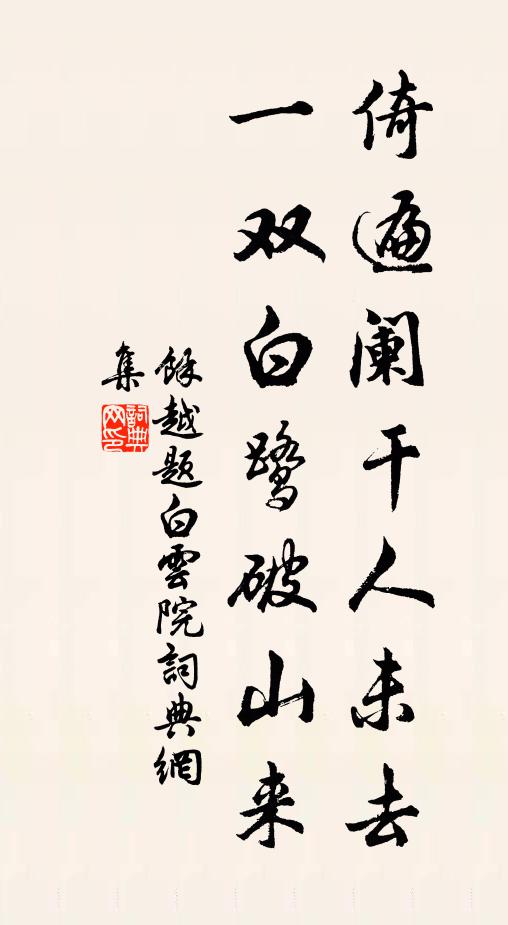 倚遍阑干人未去
一双白鹭破山来
馀越题白雲院詞典網
集
詞典网印